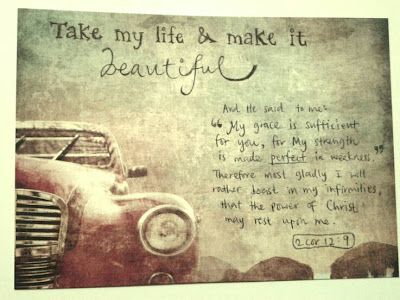 Take my life & make it
beautiful
And He said to me:
"My grace is sufficient
for you, for My strength
is made perfect in weakness"
Therefore most gladly I will
rather boast in my infirmities,
that the power of Christ
may rest upon me.
2 cor 12:9